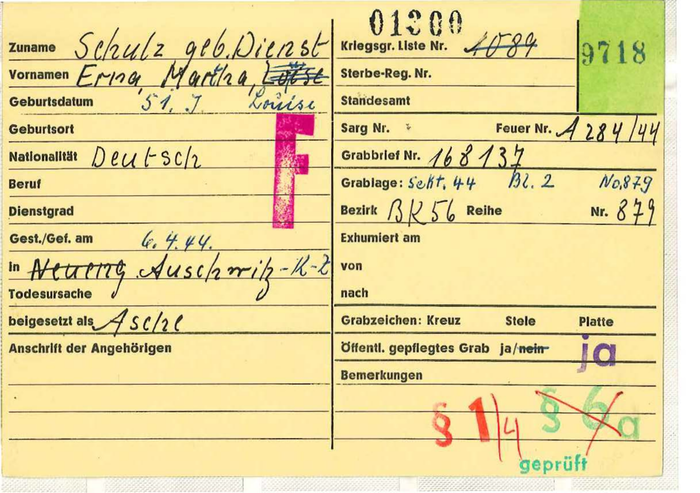 01300
9718
Zuname Schulz geb. Dienst
Vornamen Erna, Martha, Louise
Geburtsdatum 51. J.
Geburtsort
Nationalität Deutsch
Beruf
Dienstgrad
Gest./Gef. am 6.4.44.
in Auschwitz-K-Z
Todesursache
beigesetzt als Asche
Anschrift der Angehörigen
F
Kriegsgr. Liste Nr. 1089
Sterbe-Reg. Nr.
Standesamt
Sarg Nr. Feuer Nr. A 284/44
Grabbrief Nr. 168137
Grablage: Sekt. 44 Bl. 2 No. 879
Bezirk BK56 Reihe Nr. 879
Exhumiert am
von
nach
Grabzeichen: Kreuz Stele Platte
Öffentl. gepflegtes Grab ja/nein ja
Bemerkungen
§ 1/4 § 6a
geprüft